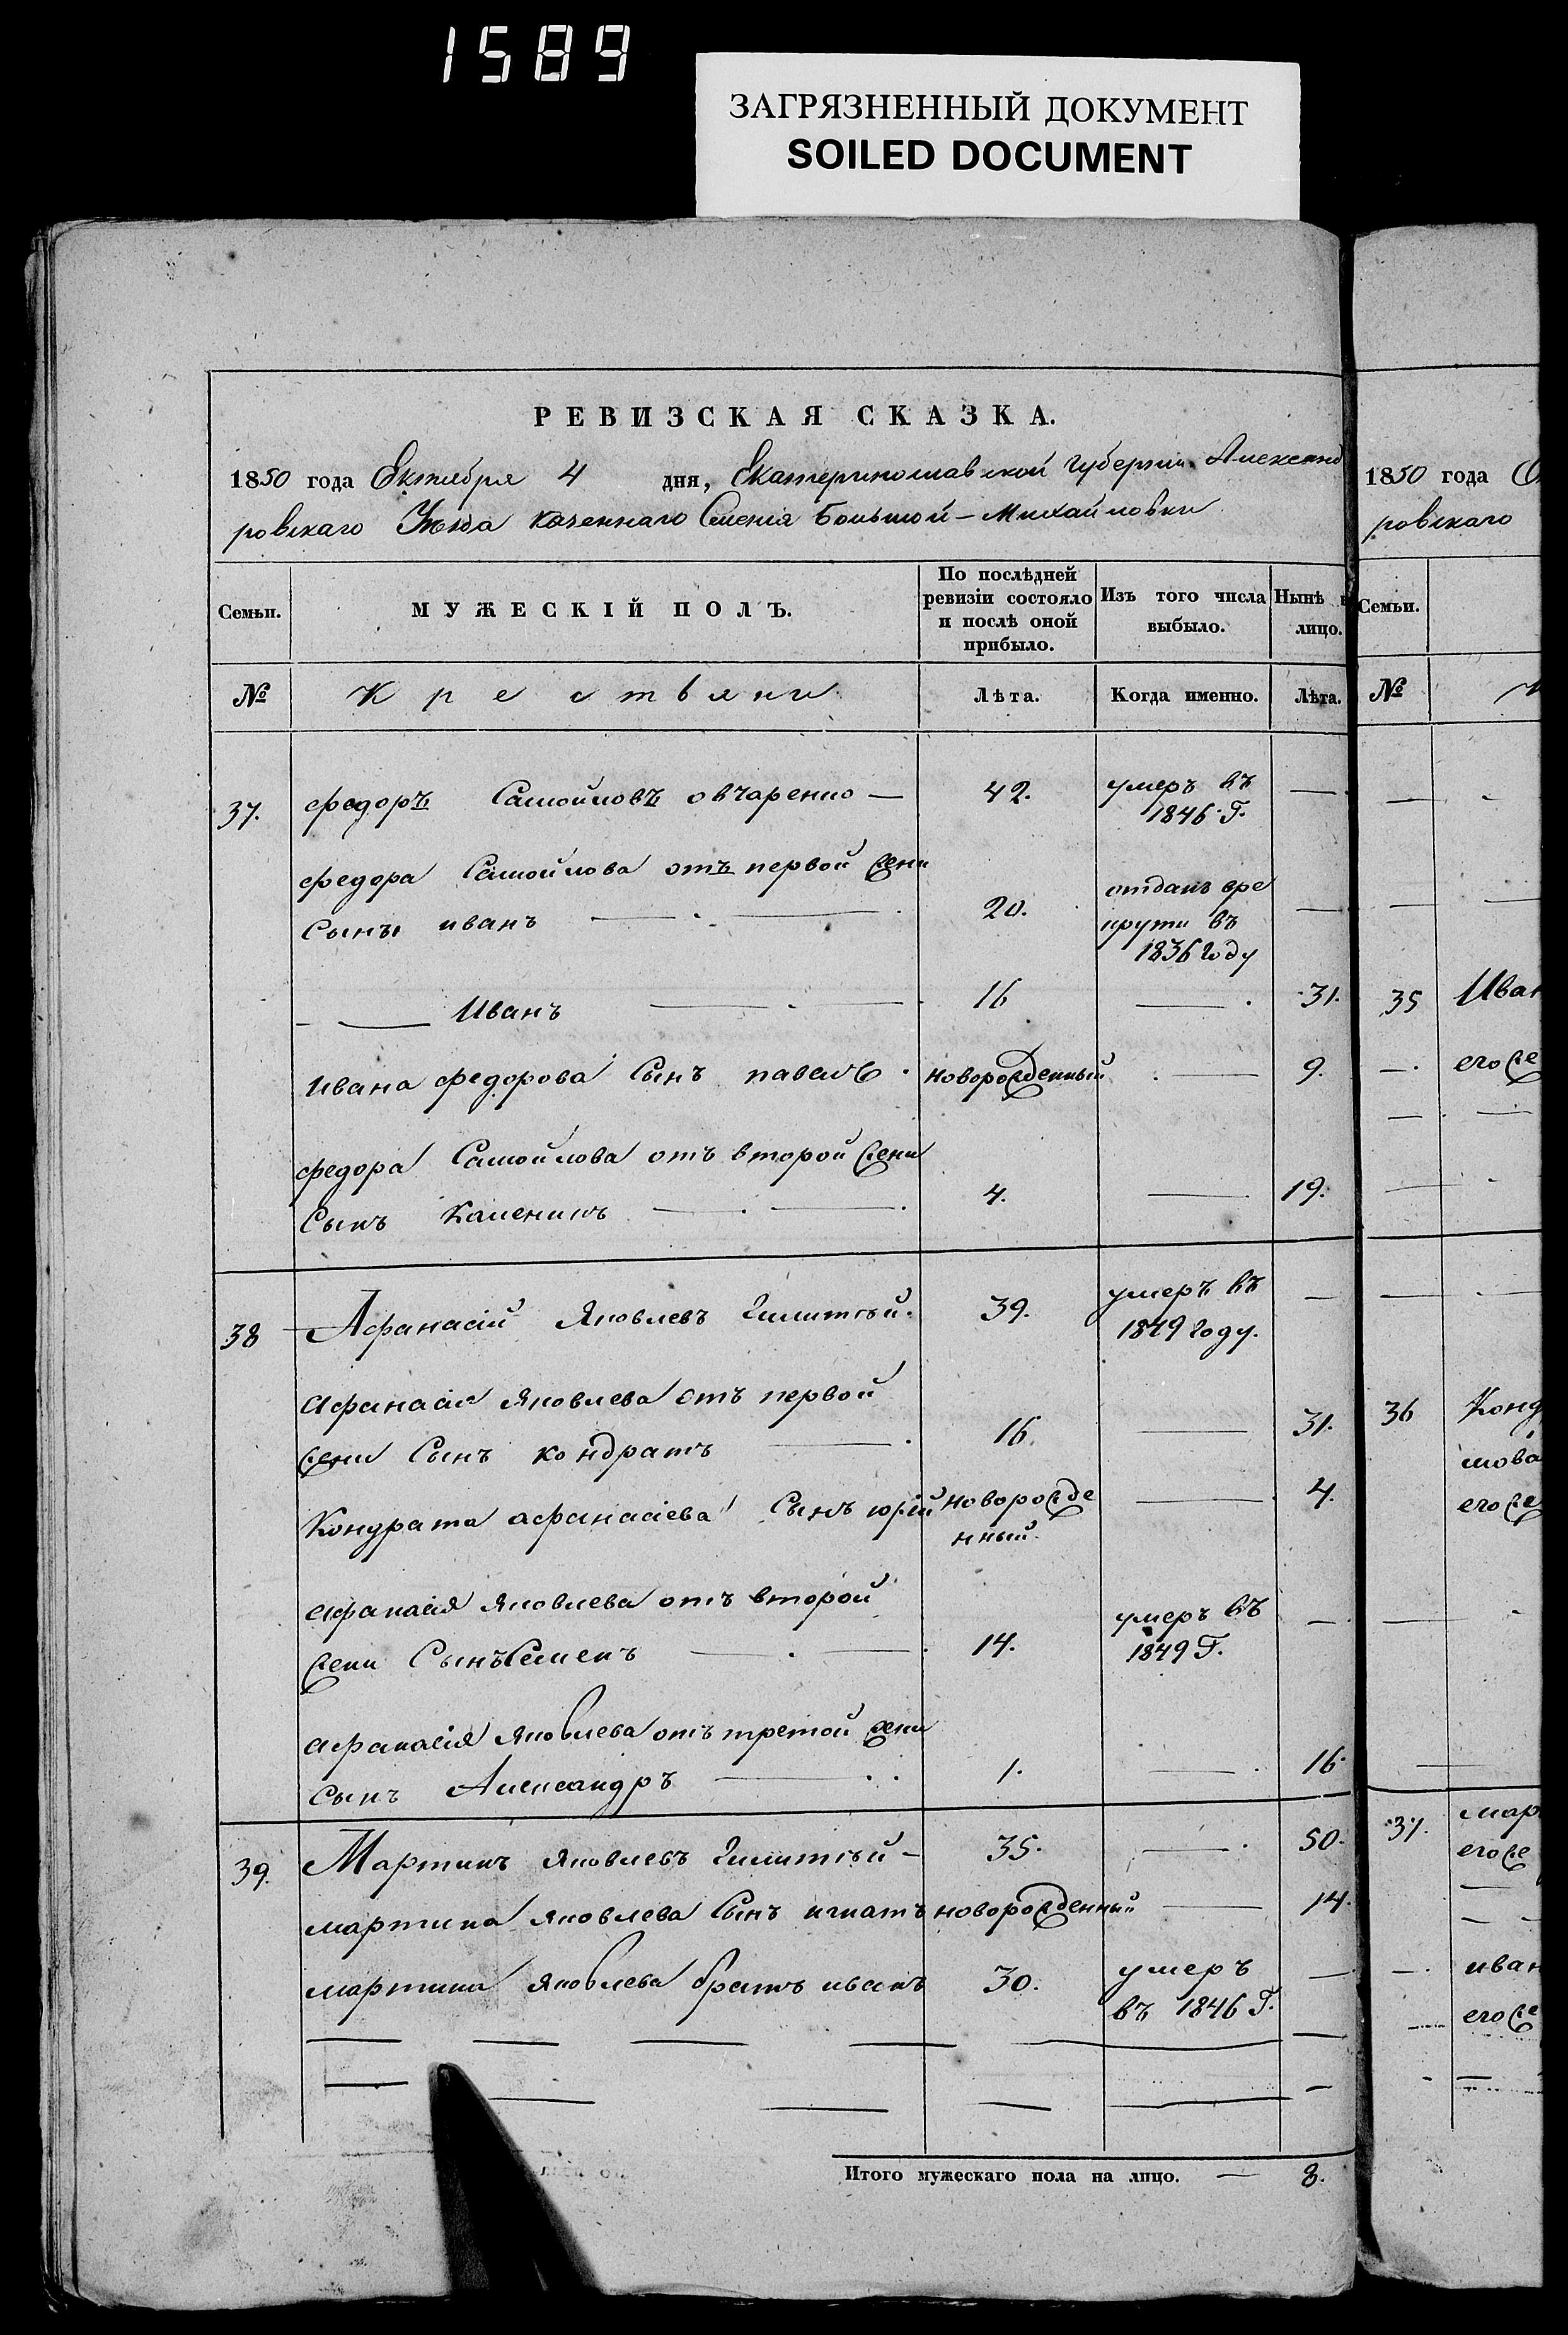 1589
ЗАГРЯЗНЕННЫЙ ДОКУМЕНТ
SOILED DOCUMENT
РЕВИЗСКАЯ СКАЗКА.
1850 года Октября 4 дня, Екатеринославской Губернии Александ
ровскаго Уезда казеннаго Селенія Большой-Михайловки
Семьи.
МУЖЕСКІЙ ПОЛЪ.
По послѣдней ревизіи состояло и послѣ оной прибыло.
Изъ того числа выбыло.
Нынѣ
лицо.
№ Крестьяни Лѣта. Когда именно. Лѣта.
37. Федоръ Самойловъ овчаренко — 42. умеръ въ 1846 Г. —
федора Самойлова отъ первой жени
Сынъ иванъ — 20. отданъ вре
крути въ
1836 Году —
— Иванъ — 16 — 31.
Ивана федорова Сынъ павелъ новорожденный — 9.
федора Самойлова отъ второй жени
Сынъ Калениκъ — 4. — 19.
38 Афанасій Яковлевъ 39. умеръ въ
1849 году. —
Афанасія Яковлева отъ первой
жени Сынъ кондратъ — 16. — 31.
Кондрата афанасіева Сынъ юрій новорожде
нный — 4.
Афанасія Яковлева отъ второй
жени Сынъ Семенъ — 14. умеръ въ
1849 Г. —
Афанасія Яковлева отъ третой жени
Сынъ Александръ — 1. — 16
39. Мартинъ Яковлевъ 35. — 50.
мартина Яковлева Сынъ игнатъ новорожденный — 14.
мартина Яковлева братъ иванъ 30. умеръ
въ 1846 Г. —
Итого мужескаго пола на лицо. — 8.
1850 года
ровскаго
Семьи.
№
35 Иван
его же
36 Конд
его же
37. мар
его же
иван
его же